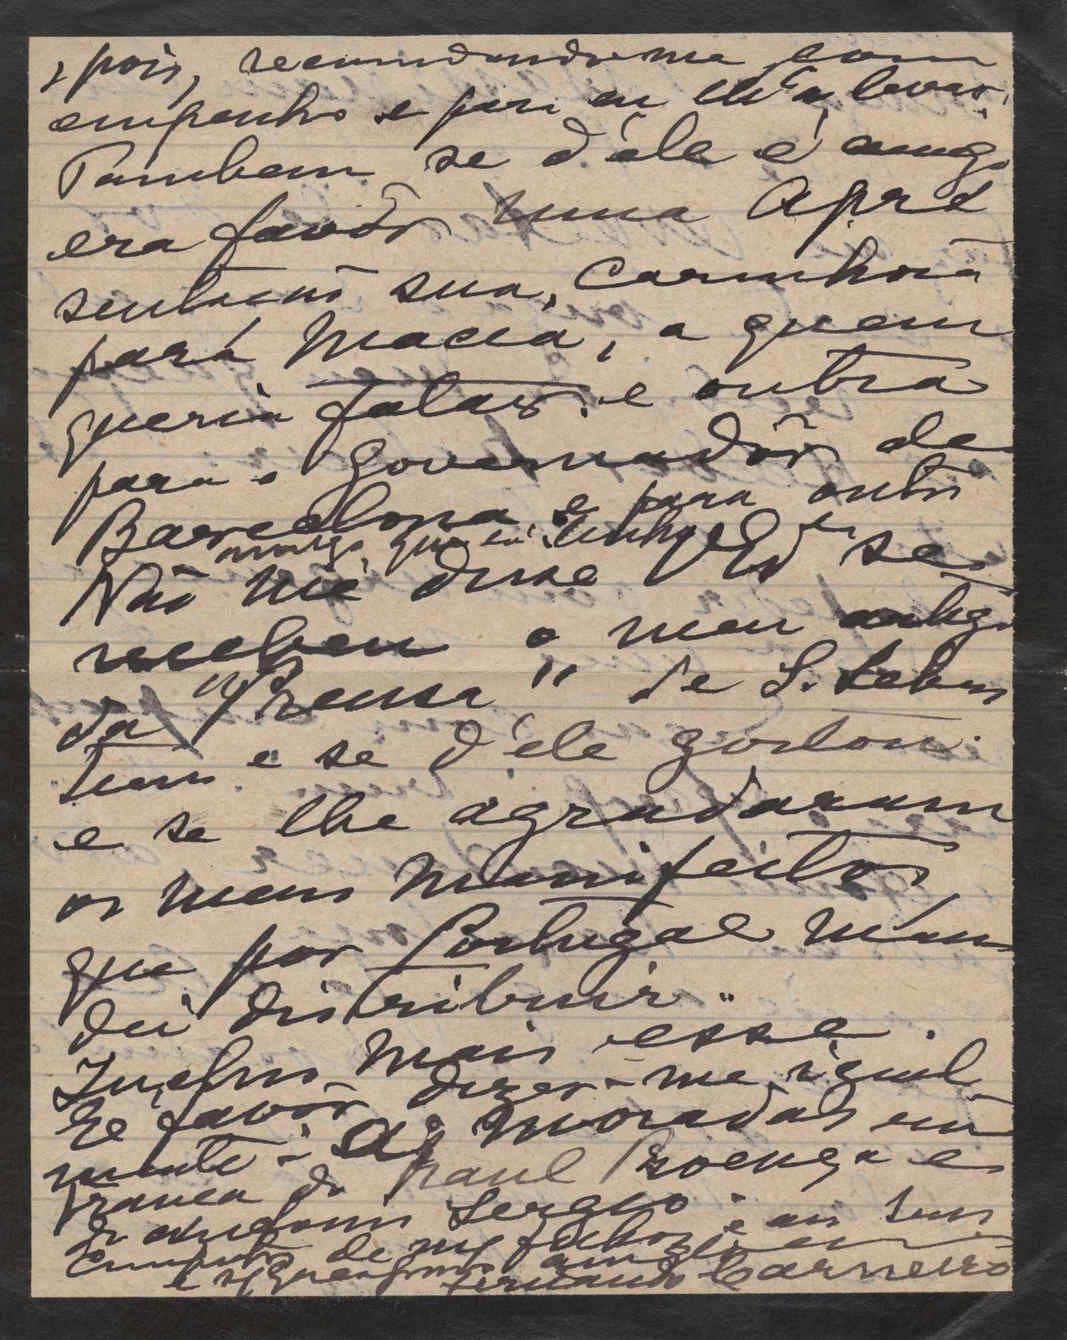 , pois, recomendando-me com
empenho e para eu lh'a levar.
Tambem se d'éle é amigo
era favôr uma apre
sentação sua, carinhosa
pará Maciá, a quem
queria falar. e outra
para o Governadôr de
Barcelona, e para outro
amigo que lá tenha
Não me disse se
recebeu o meu artigo
da "Prensa" de S. Sebas
tian e se d'éle gostou.
e se lhe agradaram
os meus Manifestos
que por Portugal Man
dei distribuir..
mais esse.
favôr dizer-me, igual
mente - as moradas em
França do Raul Proença e
do Antonio Sergio.
de
Fernando Carneiro